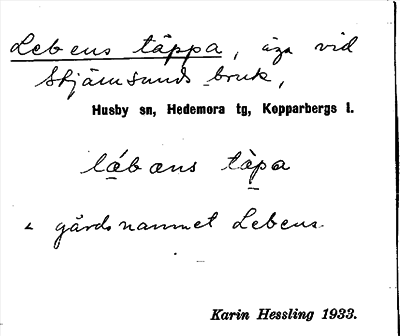 Lebens täppa, äga vid
Stjärnsunds bruk,
Husby sn, Hedemora tg, Kopparbergs l.
lǽbæns tàpa
< gårdsnamnet Lebens.
Karin Hessling 1933.